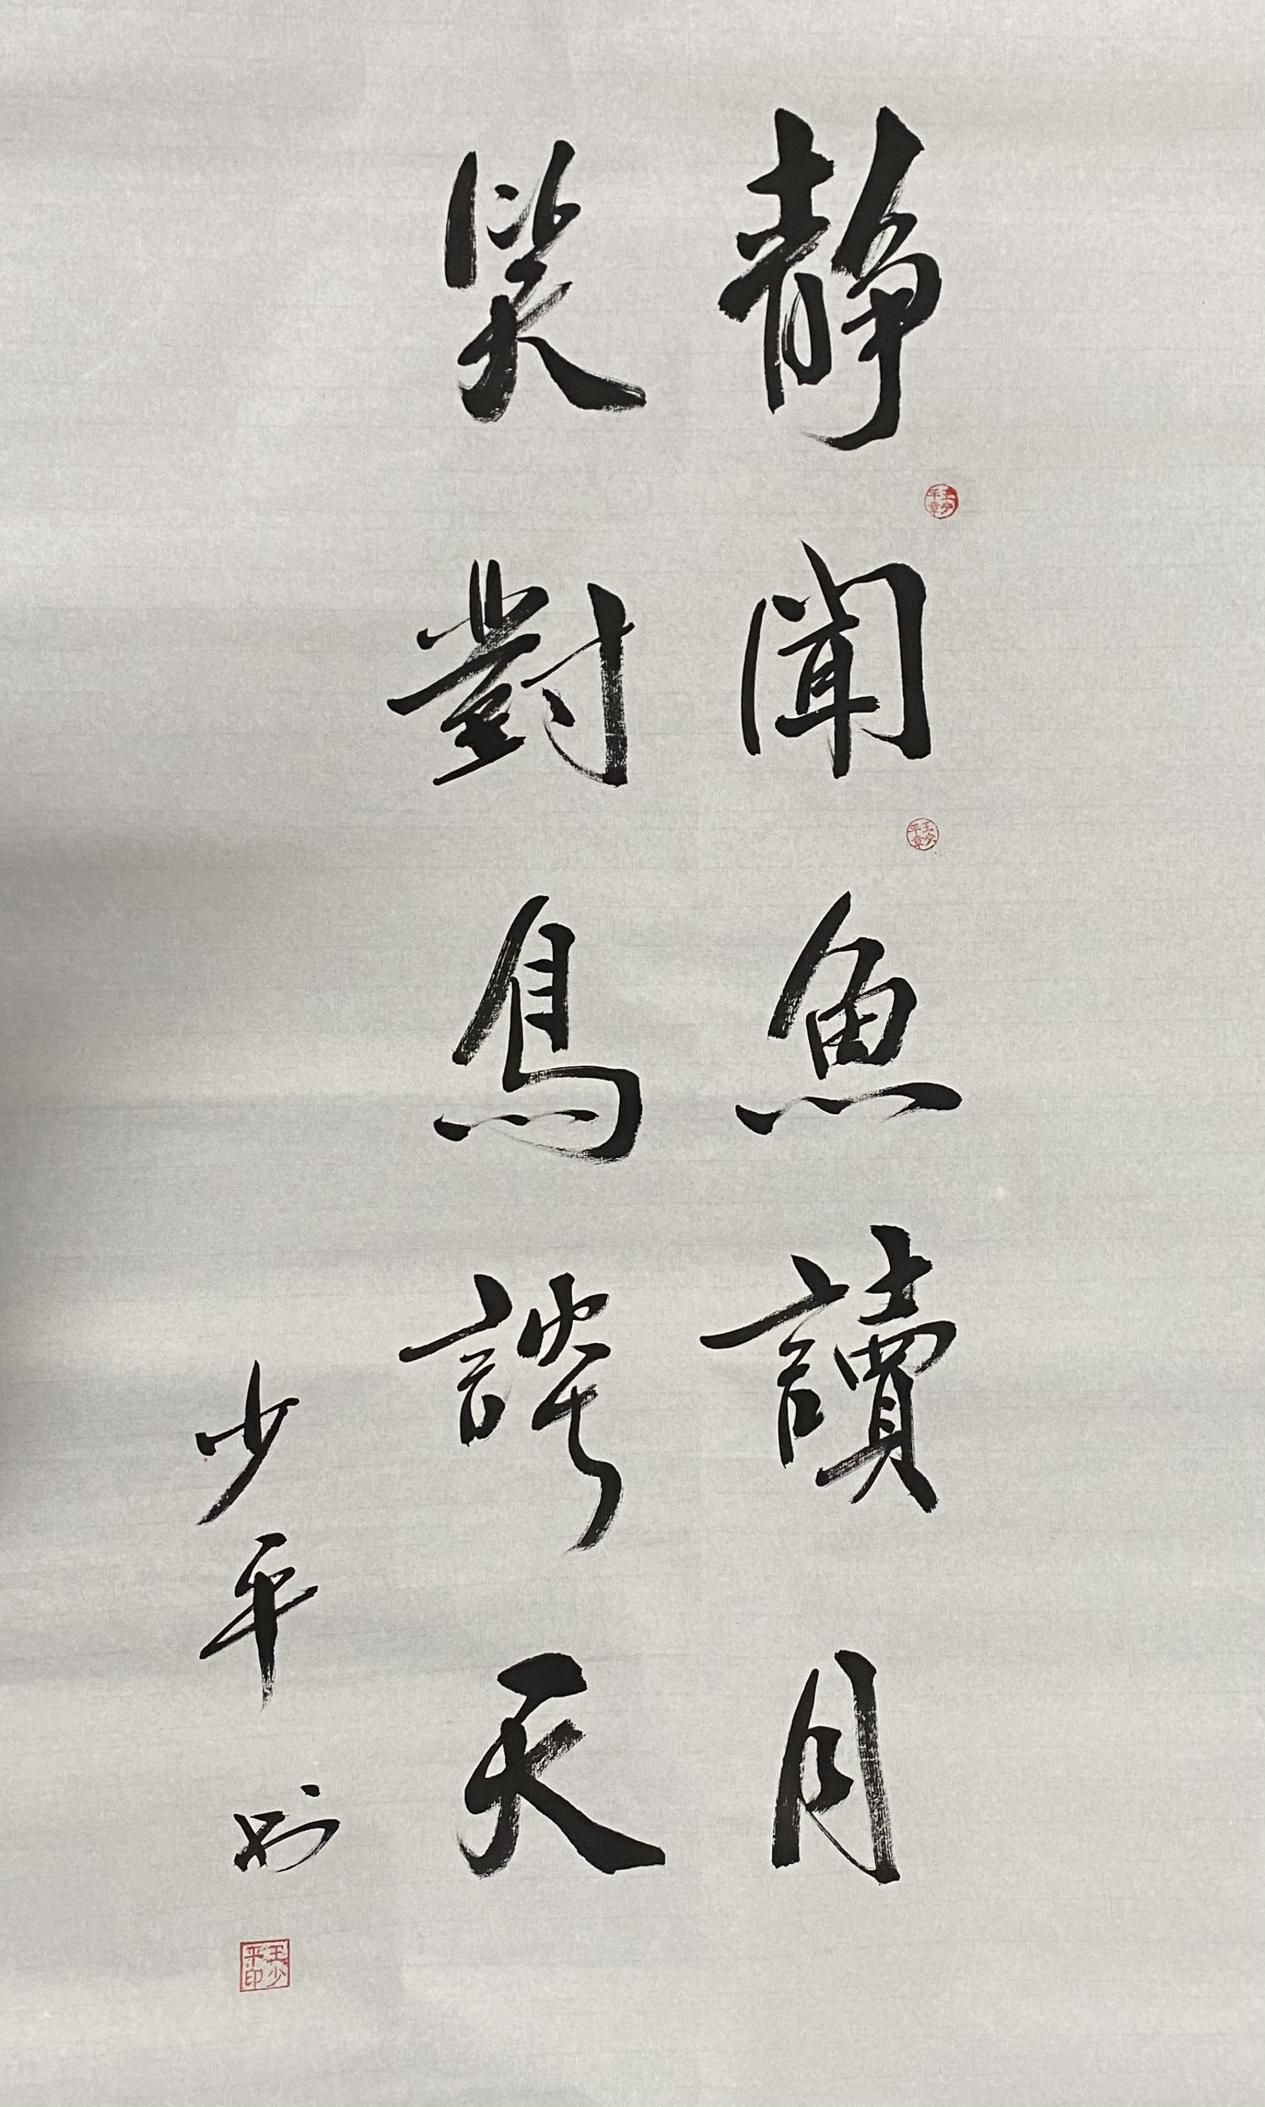 静聞魚讀月
笑對鳥談天
少平
王少平章
王少平章
王少平印